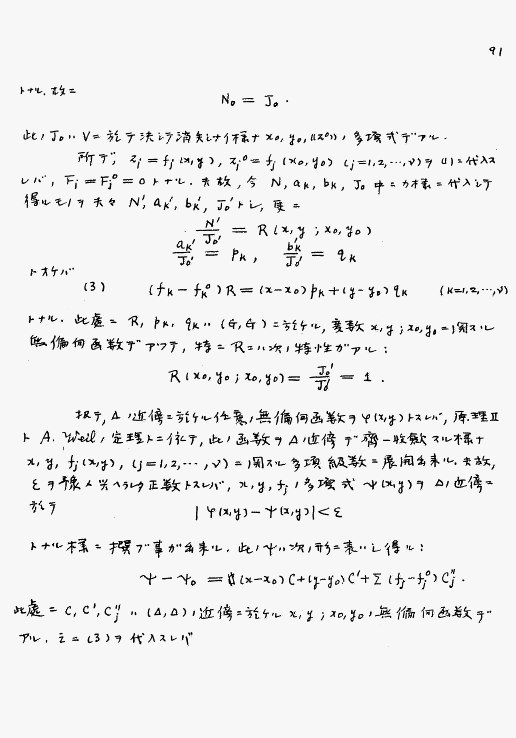 91
トナル. 故ニ
N₀ = J₀ .
此ノ J₀ ハ V ニ於テ決シテ消失シナイ様ナ x₀, y₀, ((z₀)) ノ多項式デアル.
所デ, zⱼ = fⱼ(x,y), zⱼ⁰ = fⱼ(x₀,y₀) (j=1,2,…,ν) ヲ (1) ニ代入ス
レバ, Fⱼ = Fⱼ⁰ = 0 トナル. 夫故, 今 N, aₖ, bₖ, J₀ 中ニカ様ニ代入シテ
得ルモノヲ夫々 N', aₖ', bₖ', J₀' トシ, 更ニ
N'/J₀' = R(x,y ; x₀,y₀)
aₖ'/J₀' = pₖ , bₖ'/J₀' = qₖ
トオケバ
(3) (fₖ − fₖ⁰) R = (x−x₀) pₖ + (y−y₀) qₖ (k=1,2,…,ν)
トナル. 此處ニ R, pₖ, qₖ ハ (G, G) ニ於ケル, 変数 x, y ; x₀, y₀ ニ関スル
無偏何函数デアツテ, 特ニ R ニハ次ノ特性ガアル :
R(x₀, y₀ ; x₀, y₀) = J₀'/J₀' = 1 .
扨テ, Δ ノ近傍ニ於ケル任意ノ無偏何函数ヲ φ(x,y) トスレバ, 原理 II
ト A. Weil ノ定理トニ依テ, 此ノ函数ヲ Δ ノ近傍デ齊一收斂スル様ナ
x, y, fⱼ(x,y), (j=1,2,…,ν) ニ関スル多項級数ニ展開出来ル. 夫故,
ε ヲ予メ与ヘラレタ正数トスレバ, x, y, fⱼ ノ多項式 ψ(x,y) ヲ Δ ノ近傍ニ
於テ
|φ(x,y) − ψ(x,y)| < ε
トナル様ニ撰ブ事ガ出来ル. 此ノ ψ ハ次ノ形ニ表ハシ得ル :
ψ − ψ₀ = (x−x₀) C + (y−y₀) C' + Σ (fⱼ − fⱼ⁰) Cⱼ'' .
此處ニ C, C', Cⱼ'' ハ (Δ, Δ) ノ近傍ニ於ケル x, y ; x₀, y₀ ノ無偏何函数デ
アル. 之ニ (3) ヲ代入スレバ